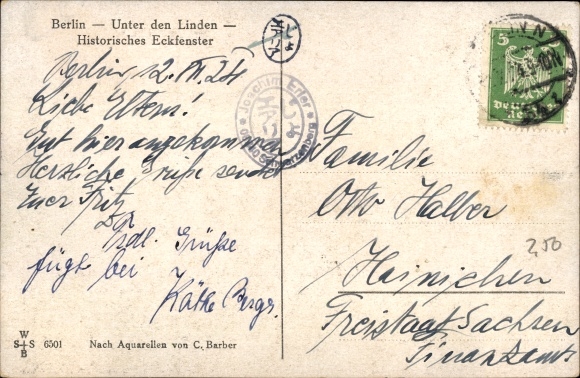 Berlin — Unter den Linden —
Historisches Eckfenster
Berlin 12. VI. 24
Liebe Eltern!
Gut hier angekommen
Herzliche Grüße sendet
Euer Fritz
frdl. Grüße
fügt bei
Käthe Berger.
W
S+S 6501
B
Nach Aquarellen von C. Barber
Joachim Erler
Schwarzenberg
5
Familie
Otto Halber
Hainichen
Freistaat Sachsen
Finanzamt
2,50